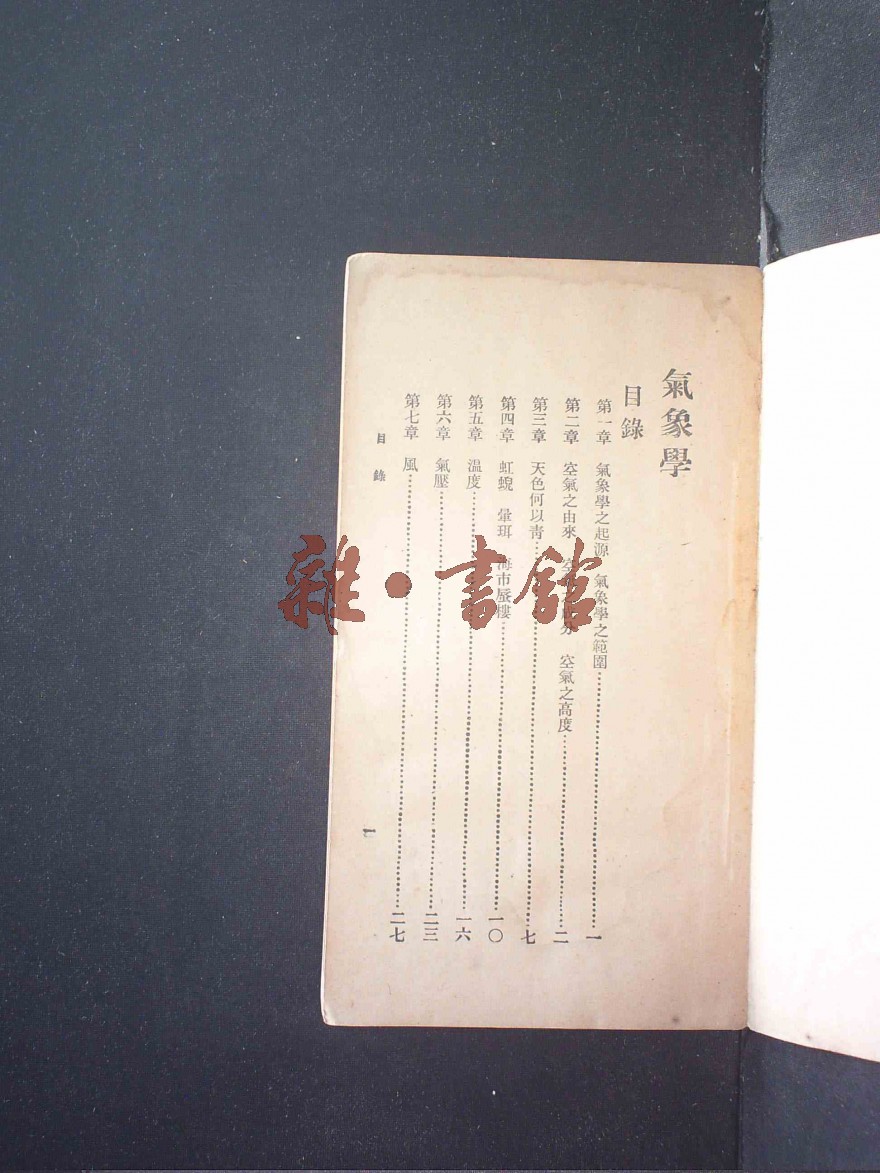 氣象學
目錄
第一章 氣象學之起源 氣象學之範圍……一
第二章 空氣之由來 空氣之成分 空氣之高度……二
第三章 天色何以青……七
第四章 虹蜺 暈珥 海市蜃樓……一〇
第五章 溫度……一六
第六章 氣壓……二三
第七章 風……二七
目錄
一
雜·書館